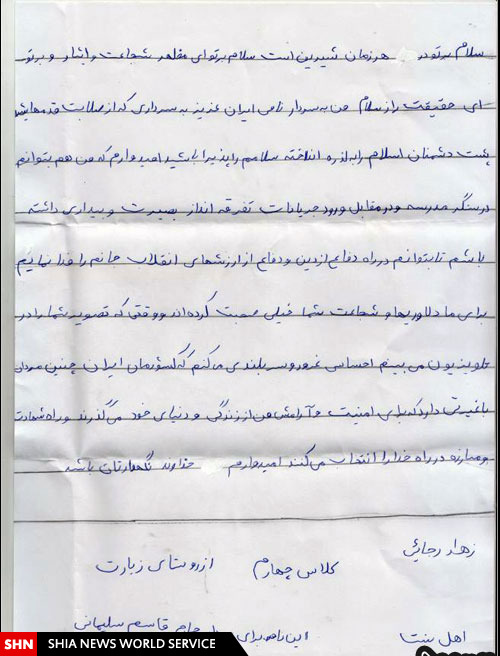 سلام برتو در هر زمان شیرین است سلام برتو ای مظهر شجاعت و ایثار و برتو
ای حقیقت راز سلام من به سردار نامی ایران عزیز به سرداری که از صلابت قدمهایش
پشت دشمنان اسلام را به لرزه انداخته سلامم را پذیرا باشید امیدوارم که من هم بتوانم
در سنگر مدرسه و در مقابل ورود جریانات تفرقه انداز بصیرت و بیداری داشته
باشم تا بتوانم در راه دفاع از دین و دفاع از ارزشهای انقلاب جانم را فدا نمایم
برای ما دلاوریها و شجاعت شما خیلی صحبت کرده اند و وقتی که تصویر شما را در
تلویزیون می بینم احساس غرور و سربلندی می کنم که کشورمان ایران چنین مردان
باغیرتی دارد که برای امنیت و آرامش من از زندگی و دنیای خود می گذرند و راه شهادت
و مبارزه در راه خدا را انتخاب می کنند امیدوارم خداوند نگهدارتان باشد
زهرا رجائی
کلاس چهارم از روستای زیارت
اهل سنت این نامه برای حاج قاسم سلیمانی
SHN SHIA NEWS WORLD SERVICE